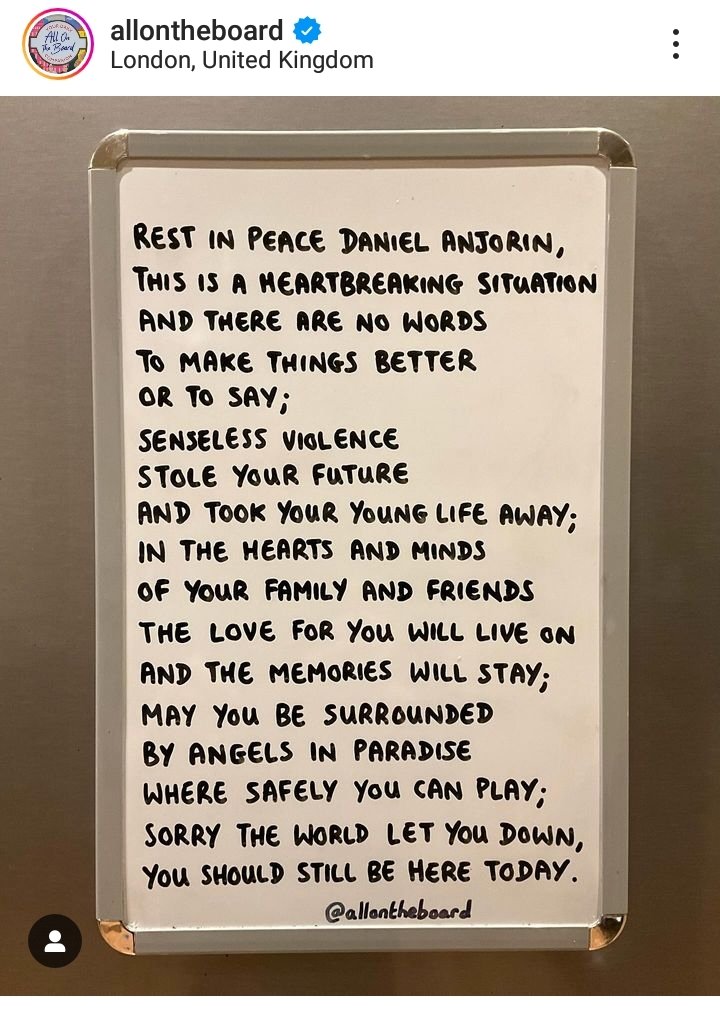 allontheboard
London, United Kingdom
YOUR DAILY
All On
The Board
COMPANION
REST IN PEACE DANIEL ANJORIN,
THIS IS A HEARTBREAKING SITUATION
AND THERE ARE NO WORDS
TO MAKE THINGS BETTER
OR TO SAY;
SENSELESS VIOLENCE
STOLE YOUR FUTURE
AND TOOK YOUR YOUNG LIFE AWAY;
IN THE HEARTS AND MINDS
OF YOUR FAMILY AND FRIENDS
THE LOVE FOR YOU WILL LIVE ON
AND THE MEMORIES WILL STAY;
MAY YOU BE SURROUNDED
BY ANGELS IN PARADISE
WHERE SAFELY YOU CAN PLAY;
SORRY THE WORLD LET YOU DOWN,
YOU SHOULD STILL BE HERE TODAY.
@allontheboard